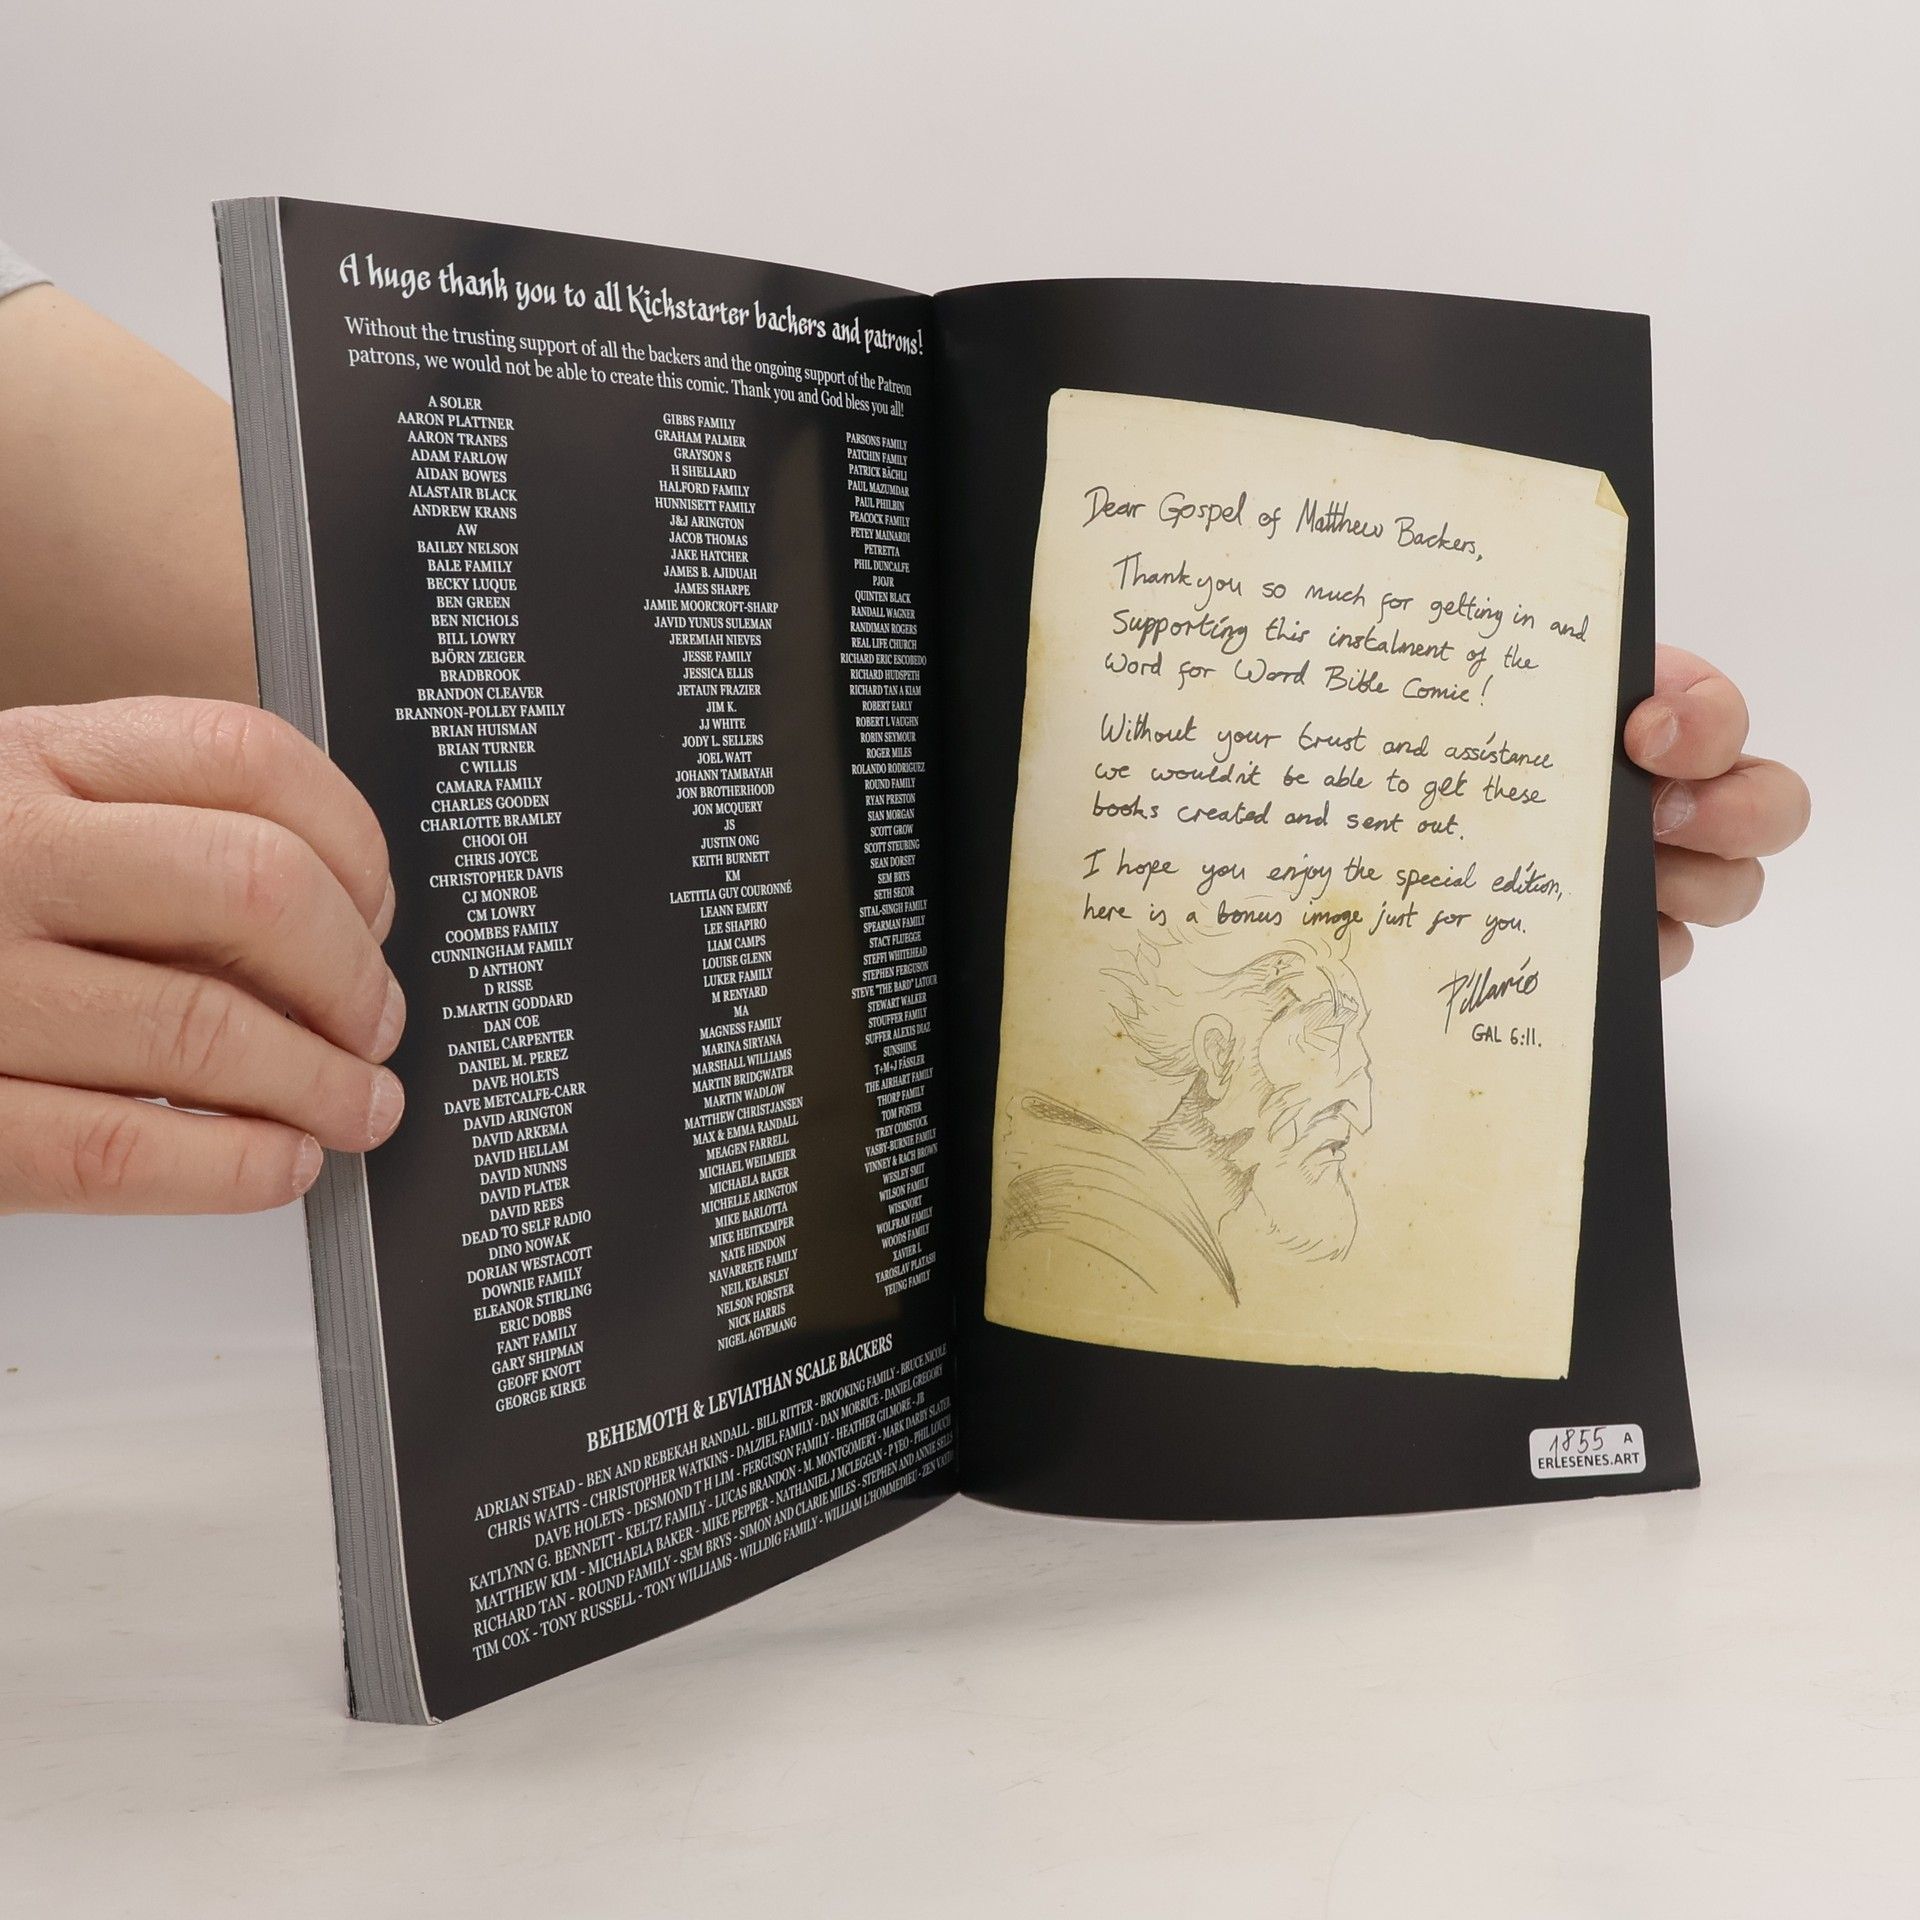 A huge thank you to all Kickstarter backers and patrons!
Without the trusting support of all the backers and the ongoing support of the Patreon
patrons, we would not be able to create this comic. Thank you and God bless you all!
A SOLER
AARON PLATTNER
AARON TRANES
ADAM FARLOW
AIDAN BOWES
ALASTAIR BLACK
ANDREW KRANS
AW
BAILEY NELSON
BALE FAMILY
BECKY LUQUE
BEN GREEN
BEN NICHOLS
BILL LOWRY
BJÖRN ZEIGER
BRADBROOK
BRANDON CLEAVER
BRANNON-POLLEY FAMILY
BRIAN HUISMAN
BRIAN TURNER
C WILLIS
CAMARA FAMILY
CHARLES GOODEN
CHARLOTTE BRAMLEY
CHOOI OH
CHRIS JOYCE
CHRISTOPHER DAVIS
CJ MONROE
CM LOWRY
COOMBES FAMILY
CUNNINGHAM FAMILY
D ANTHONY
D RISSE
D.MARTIN GODDARD
DAN COE
DANIEL CARPENTER
DANIEL M. PEREZ
DAVE HOLETS
DAVE METCALFE-CARR
DAVID ARINGTON
DAVID ARKEMA
DAVID HELLAM
DAVID NUNNS
DAVID PLATER
DAVID REES
DEAD TO SELF RADIO
DINO NOWAK
DORIAN WESTACOTT
DOWNIE FAMILY
ELEANOR STIRLING
ERIC DOBBS
FANT FAMILY
GARY SHIPMAN
GEOFF KNOTT
GEORGE KIRKE
GIBBS FAMILY
GRAHAM PALMER
GRAYSON S
H SHELLARD
HALFORD FAMILY
HUNNISETT FAMILY
J&J ARINGTON
JACOB THOMAS
JAKE HATCHER
JAMES B. AJIDUAH
JAMES SHARPE
JAMIE MOORCROFT-SHARP
JAVID YUNUS SULEMAN
JEREMIAH NIEVES
JESSE FAMILY
JESSICA ELLIS
JETAUN FRAZIER
JIM K.
JJ WHITE
JODY L. SELLERS
JOEL WATT
JOHANN TAMBAYAH
JON BROTHERHOOD
JON MCQUERY
JS
JUSTIN ONG
KEITH BURNETT
KM
LAETITIA GUY COURONNÉ
LEANN EMERY
LEE SHAPIRO
LIAM CAMPS
LOUISE GLENN
LUKER FAMILY
M RENYARD
MA
MAGNESS FAMILY
MARINA SIRYANA
MARSHALL WILLIAMS
MARTIN BRIDGWATER
MARTIN WADLOW
MATTHEW CHRISTJANSEN
MAX & EMMA RANDALL
MEAGEN FARRELL
MICHAEL WEILMEIER
MICHAELA BAKER
MICHELLE ARINGTON
MIKE BARLOTTA
MIKE HEITKEMPER
NATE HENDON
NAVARRETE FAMILY
NEIL KEARSLEY
NELSON FORSTER
NICK HARRIS
NIGEL AGYEMANG
PARSONS FAMILY
PATCHIN FAMILY
PATRICK BÄCHLI
PAUL MAZUMDAR
PAUL PHILBIN
PEACOCK FAMILY
PETEY MAINARDI
PETRETTA
PHIL DUNCALFE
PJOJR
QUINTEN BLACK
RANDALL WAGNER
RANDIMAN ROGERS
REAL LIFE CHURCH
RICHARD ERIC ESCOBEDO
RICHARD HUDSPETH
RICHARD TAN A KIAM
ROBERT EARLY
ROBERT L VAUGHN
ROBIN SEYMOUR
ROGER MILES
ROLANDO RODRIGUEZ
ROUND FAMILY
RYAN PRESTON
SIAN MORGAN
SCOTT GROW
SCOTT STEUBING
SEAN DORSEY
SEM BRYS
SETH SECOR
SITAL-SINGH FAMILY
SPEARMAN FAMILY
STACY FLUEGGE
STEFFI WHITEHEAD
STEPHEN FERGUSON
STEVE "THE BARD" LATOUR
STEWART WALKER
STOUFFER FAMILY
SUFFER ALEXIS DIAZ
SUNSHINE
T+M+J FÄSSLER
THE AIRHART FAMILY
THORP FAMILY
TOM FOSTER
TREY COMSTOCK
VASBY-BURNIE FAMILY
VINNEY & RACH BROWN
WESLEY SMIT
WILSON FAMILY
WISKNORT
WOLFRAM FAMILY
WOODS FAMILY
XAVIER L
YAROSLAV PLATASH
YEUNG FAMILY
BEHEMOTH & LEVIATHAN SCALE BACKERS
ADRIAN STEAD - BEN AND REBEKAH RANDALL - BILL RITTER - BROOKING FAMILY - BRUCE NICOLE
CHRIS WATTS - CHRISTOPHER WATKINS - DALZIEL FAMILY - DAN MORRICE - DANIEL GREGORY
DAVE HOLETS - DESMOND T H LIM - FERGUSON FAMILY - HEATHER GILMORE - JB
KATLYNN G. BENNETT - KELTZ FAMILY - LUCAS BRANDON - M. MONTGOMERY - MARK DARBY SLATER
MATTHEW KIM - MICHAELA BAKER - MIKE PEPPER - NATHANIEL J MCLEGGAN - P YEO - PHIL LOUCH
RICHARD TAN - ROUND FAMILY - SEM BRYS - SIMON AND CLARIE MILES - STEPHEN AND ANNIE SELLS
TIM COX - TONY RUSSELL - TONY WILLIAMS - WILLDIG FAMILY - WILLIAM L'HOMMEDIEU - ZEN
Dear Gospel of Matthew Backers,
Thank you so much for getting in and
Supporting this instalment of the
Word for Word Bible Comic!
Without your trust and assistance
we wouldn't be able to get these
books created and sent out.
I hope you enjoy the special edition,
here is a bonus image just for you.
Pillario
GAL 6:11.
1855 A
ERLESENES.ART